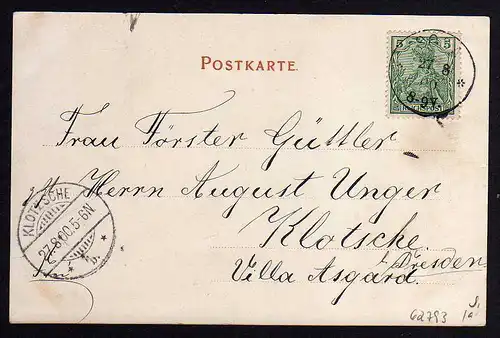 POSTKARTE
5 5
27 8
8-9V.
Frau Förster Güttler
Herrn August Unger
KLOTZSCHE
27.8.00.5-6N.
b.
Klotsche
b. Dresden
Villa Asgard.
62793